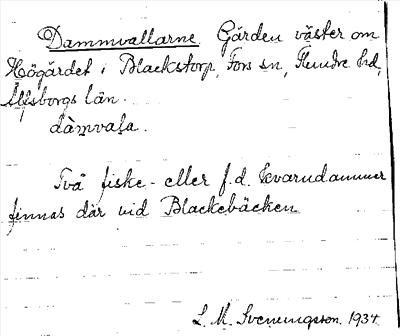 Dammvallarne Gärden väster om
Högärdet i Blackstorp, Fors sn, Flundre hd,
Älfsborgs län.
dàmvala.
Två fiske- eller f.d. kvarndammar
finnas där vid Blackebäcken
L. M. Svenungsson. 1934.